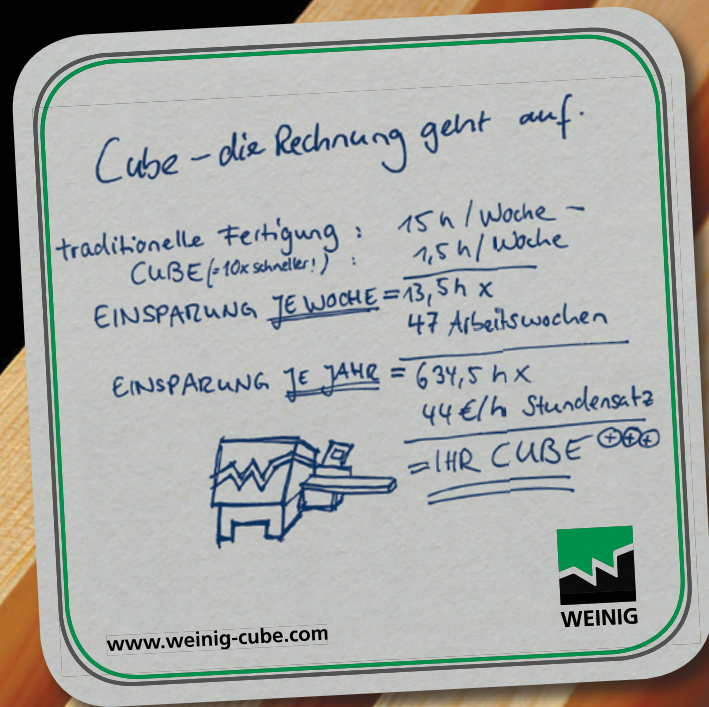 Cube – die Rechnung geht auf.
traditionelle Fertigung : 15 h / Woche –
CUBE (= 10x schneller!) : 1,5 h / Woche
EINSPARUNG JE WOCHE = 13,5 h x
47 Arbeitswochen
EINSPARUNG JE JAHR = 634,5 h x
44 €/h Stundensatz
= IHR CUBE +++
WEINIG
www.weinig-cube.com